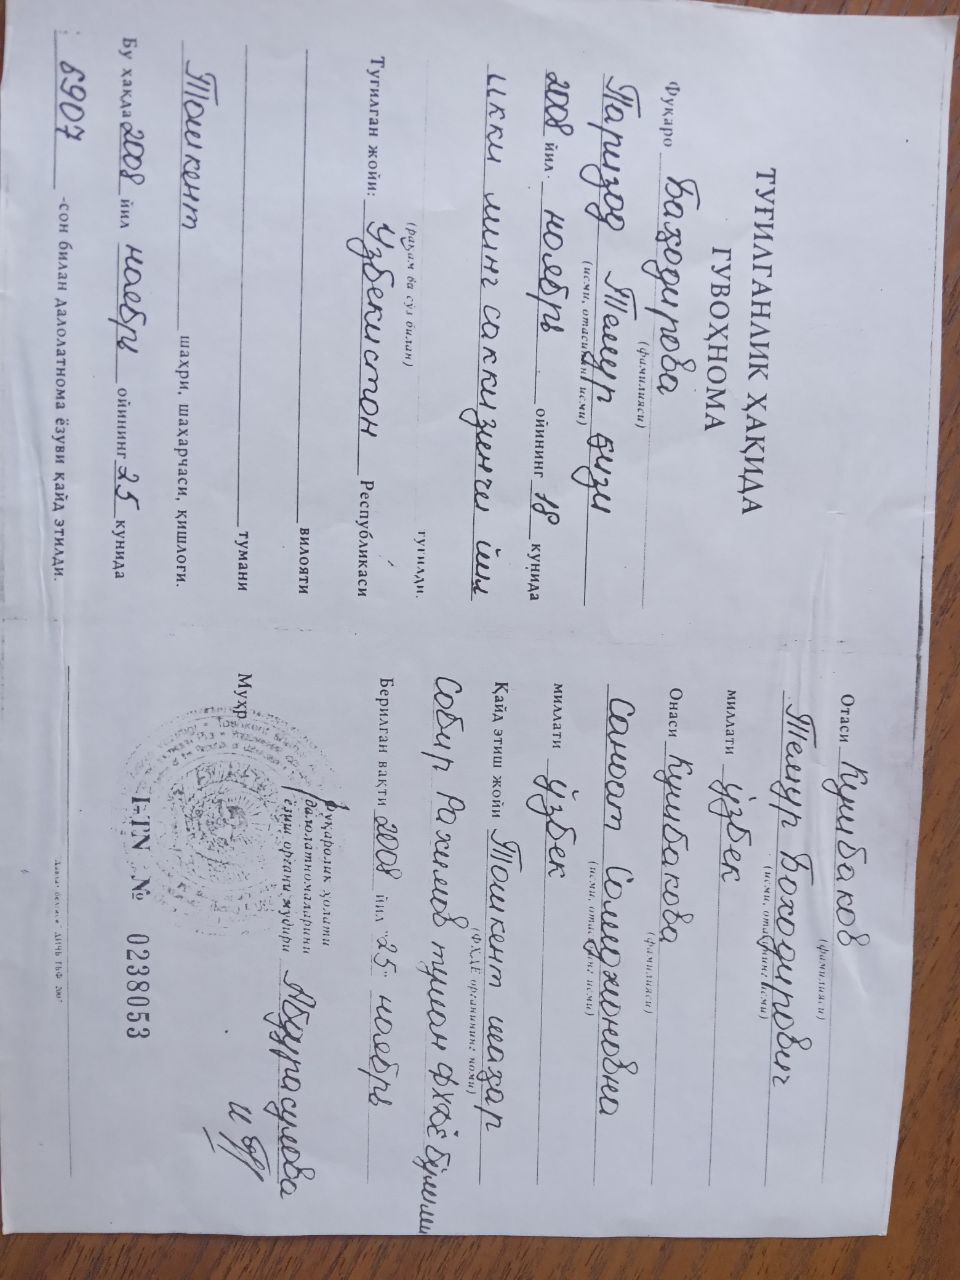 ТУҒИЛГАНЛИК ҲАҚИДА
ГУВОҲНОМА
Фуқаро Баҳодирова
(фамилияси)
Паризод Темур қизи
(исми, отасининг исми)
2008 йил. ноябрь ойининг 18 кунида
икки минг саккизинчи йил
(рақам ва сўз билан) туғилди.
Туғилган жойи: Ўзбекистон Республикаси
вилояти
тумани
Тошкент шаҳри, шаҳарчаси, қишлоғи.
Бу ҳақда 2008 йил ноябрь ойининг 25 кунида
6907 -сон билан далолатнома ёзуви қайд этилди.
Отаси Кушбаков
(фамилияси)
Темур Боходирович
(исми, отасининг исми)
миллати ўзбек
Онаси Кушбакова
(фамилияси)
Саноат Солижоновна
(исми, отасининг исми)
миллати ўзбек
Қайд этиш жойи Тошкент шаҳар
(ФҲДЁ органининг номи)
Собир Рахимов туман ФХДЁ бўлими
Берилган вақти 2008 йил "25" ноябрь
Фуқаролик ҳолати
далолатномаларини
ёзиш органи мудири Абдурасулова
Муҳр
I-TN № 0238053